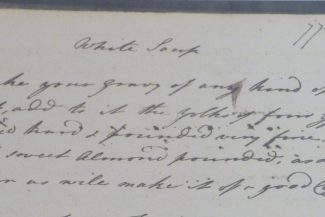 77
White Soup
ke your gravy of any kind of
add to it the yolks of four
d hard & pounded very fine
sweet Almond pounded, as
as will make it of a good C